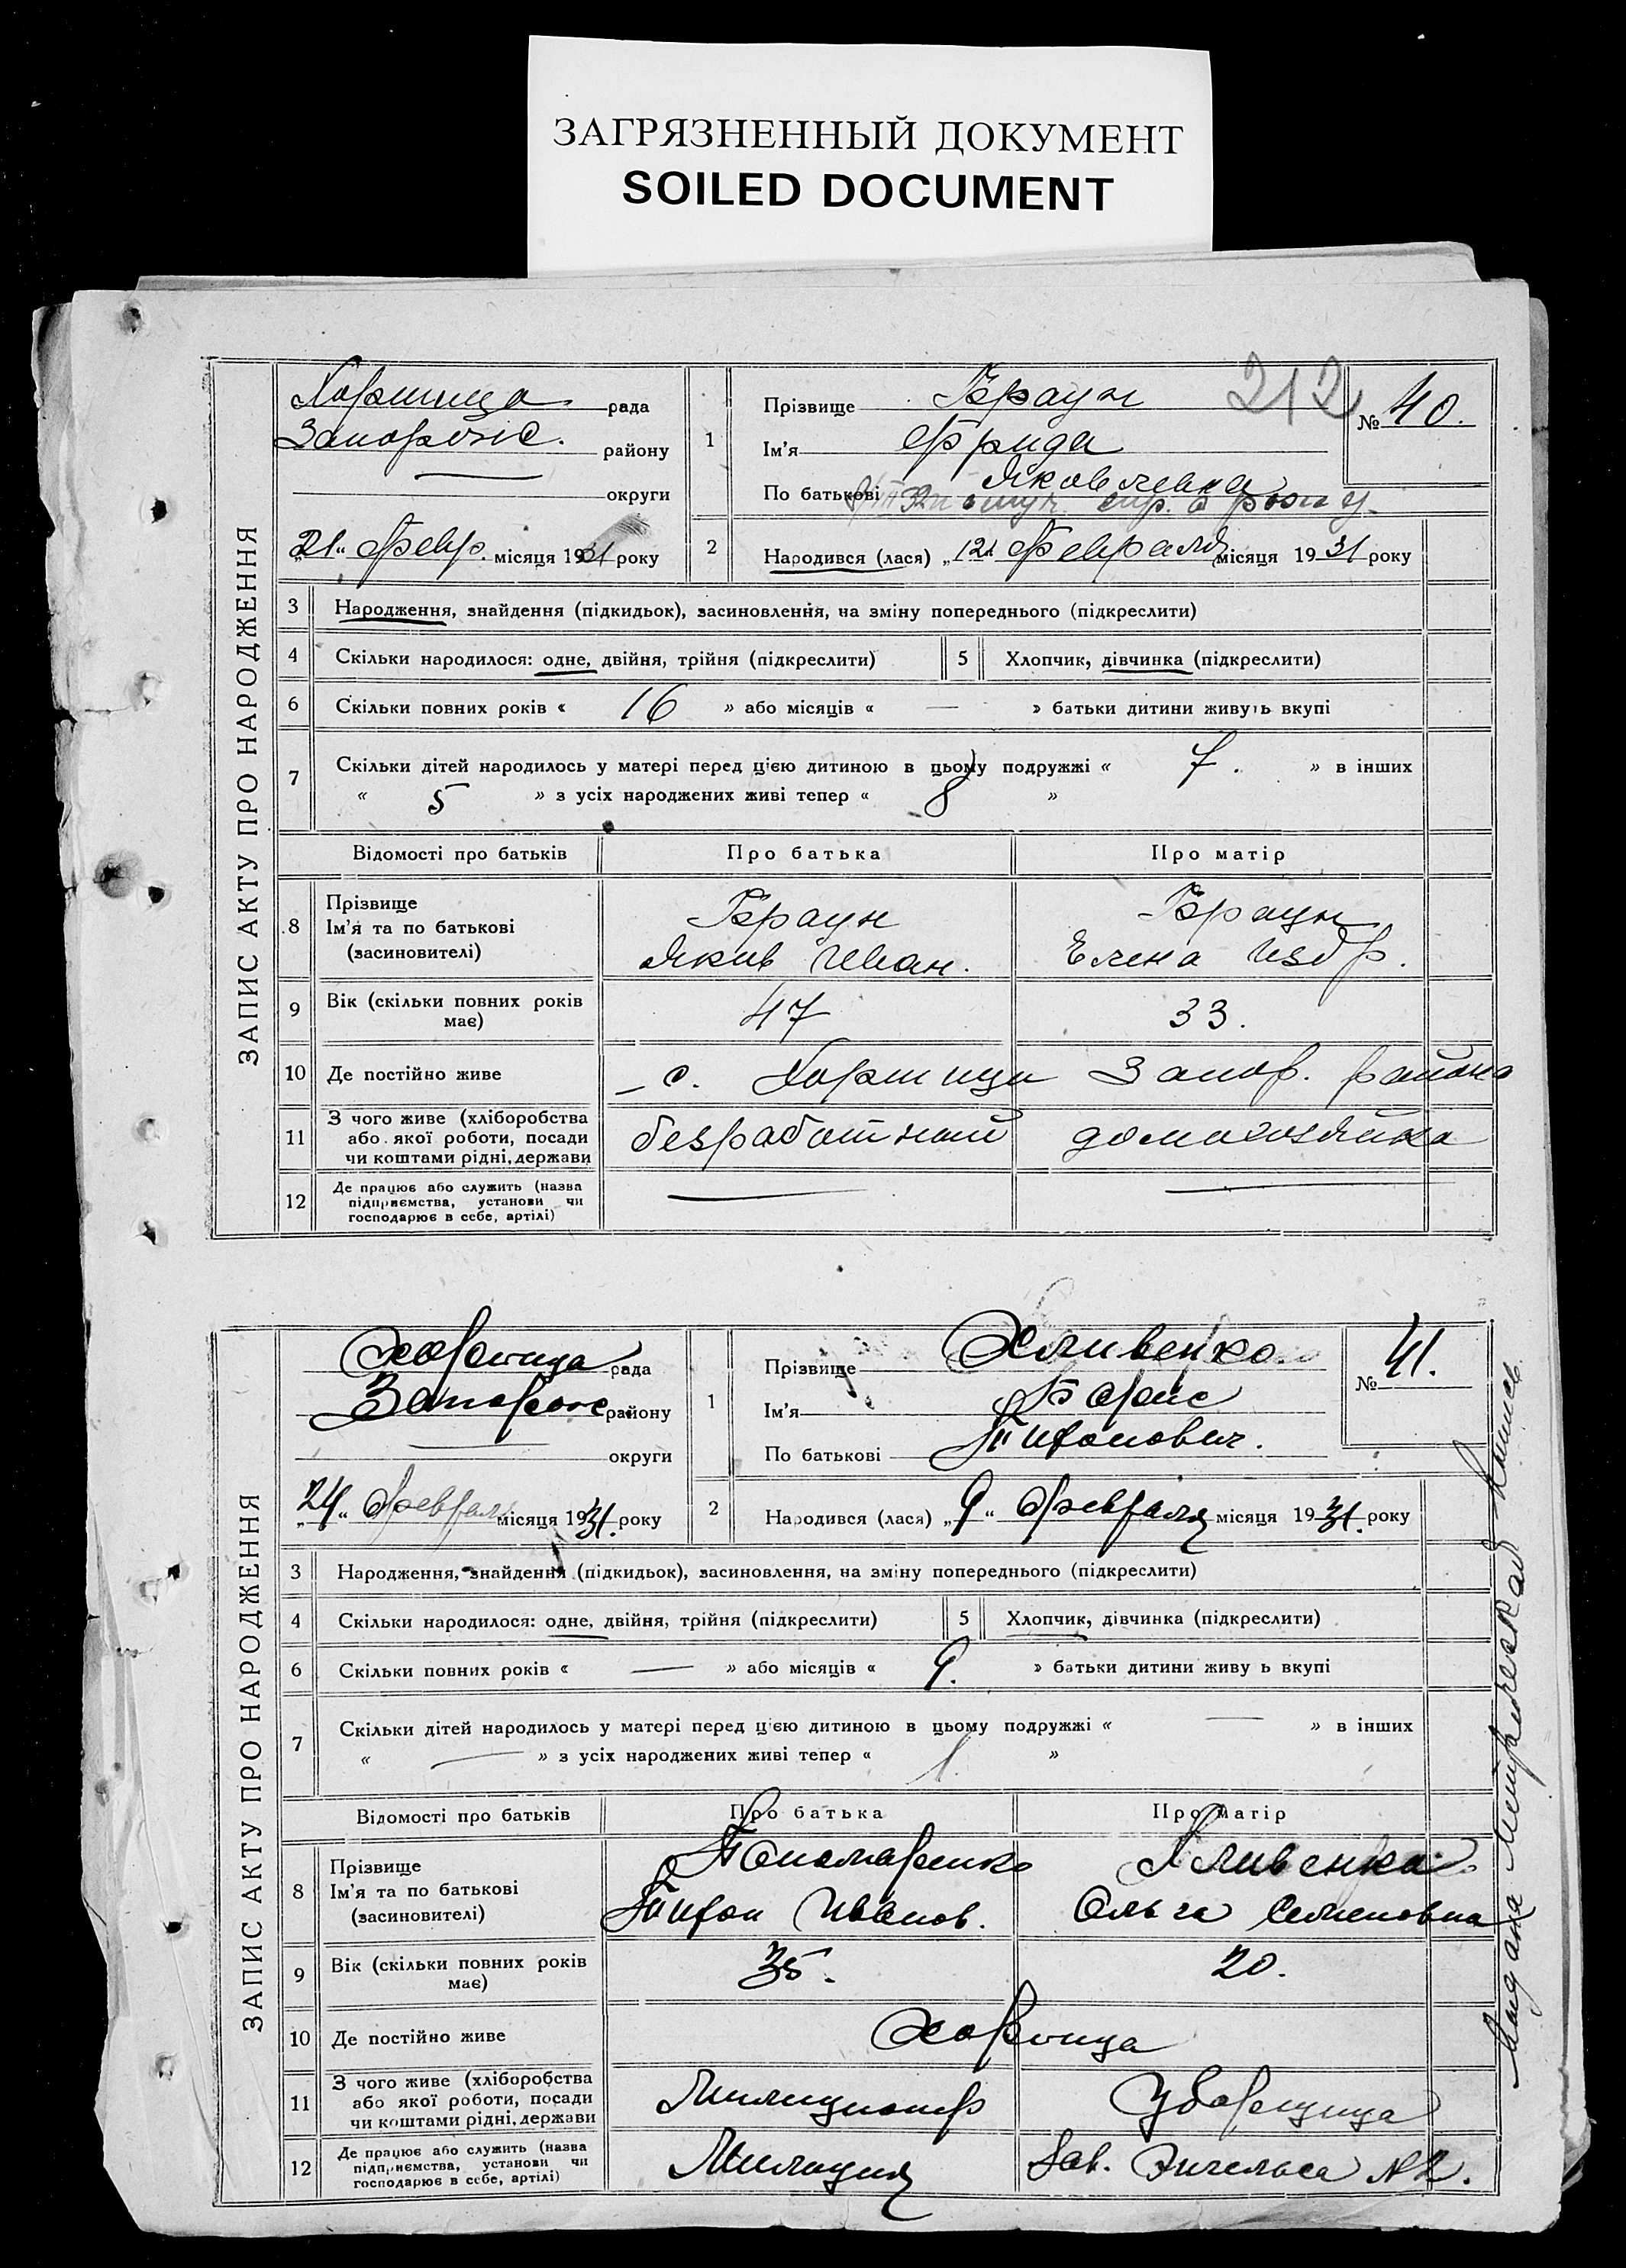 ЗАГРЯЗНЕННЫЙ ДОКУМЕНТ
SOILED DOCUMENT
212
ЗАПИС АКТУ ПРО НАРОДЖЕННЯ
Хортица рада
Запорож. району
округи
„21“ Февр. місяця 1931 року
1
Прізвище Браун
Ім'я Фрида
По батькові Яковлевна
№ 40.
2
Народився (лася) „12“ Февраля місяця 1931 року
3 Народження, знайдення (підкидьок), засиновлення, на зміну попереднього (підкреслити)
4 Скільки народилося: одне, двійня, трійня (підкреслити) 5 Хлопчик, дівчинка (підкреслити)
6 Скільки повних років « 16 » або місяців « — » батьки дитини живуть вкупі
7 Скільки дітей народилось у матері перед цією дитиною в цьому подружжі « 7. » в інших
« 5 » з усіх народжених живі тепер « 8 »
Відомості про батьків Про батька Про матір
8 Прізвище Браун Браун
Ім'я та по батькові Яков Иван. Елена
(засиновителі)
9 Вік (скільки повних років має) 47 33.
10 Де постійно живе с. Хортица Запор. района
11 З чого живе (хліборобства або якої роботи, посади чи коштами рідні, держави безработный домохозяйка
12 Де працює або служить (назва підприємства, установи чи господарює в себе, артілі) — —
ЗАПИС АКТУ ПРО НАРОДЖЕННЯ
Хортица рада
Запорож. району
округи
„24“ Февраля місяця 1931. року
1
Прізвище Хливенко
Ім'я Борис
По батькові Тихонович.
№ 41.
2
Народився (лася) „9“ Февраля місяця 1931. року
3 Народження, знайдення (підкидьок), засиновлення, на зміну попереднього (підкреслити)
4 Скільки народилося: одне, двійня, трійня (підкреслити) 5 Хлопчик, дівчинка (підкреслити)
6 Скільки повних років « — » або місяців « 9. » батьки дитини живу ь вкупі
7 Скільки дітей народилось у матері перед цією дитиною в цьому подружжі « — » в інших
« — » з усіх народжених живі тепер « 1. »
Відомості про батьків Про батька Про матір
8 Прізвище Пономаренко Хливенко
Ім'я та по батькові Тихон Иванов. Ольга Семеновна
(засиновителі)
9 Вік (скільки повних років має) 35. 20.
10 Де постійно живе Хортица
11 З чого живе (хліборобства або якої роботи, посади чи коштами рідні, держави Милиционер Уборщица
12 Де працює або служить (назва підприємства, установи чи господарює в себе, артілі) Милиция Зав. Энгельса №2.
Выдана метрическая выпись